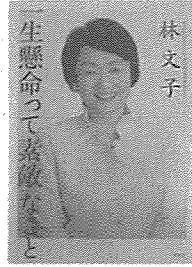 林文子
一生懸命って素敵なこと